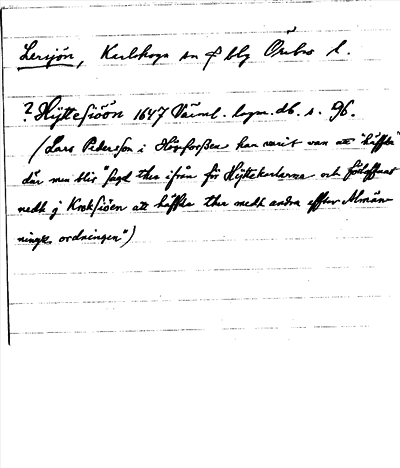 Lersjön, Karlskoga sn o blg Örebro l.
? Hÿttesiöön 1647 Värml. lagm. db. s. 96.
(Lars Pedersson i Högforßen har varit wan att "håffta"
där men blir "sagd ther ifrån för Hÿttekarlarna och
nedh j Kroksiöen att håffta ther medh andra effter Almän
ninges ordningen")